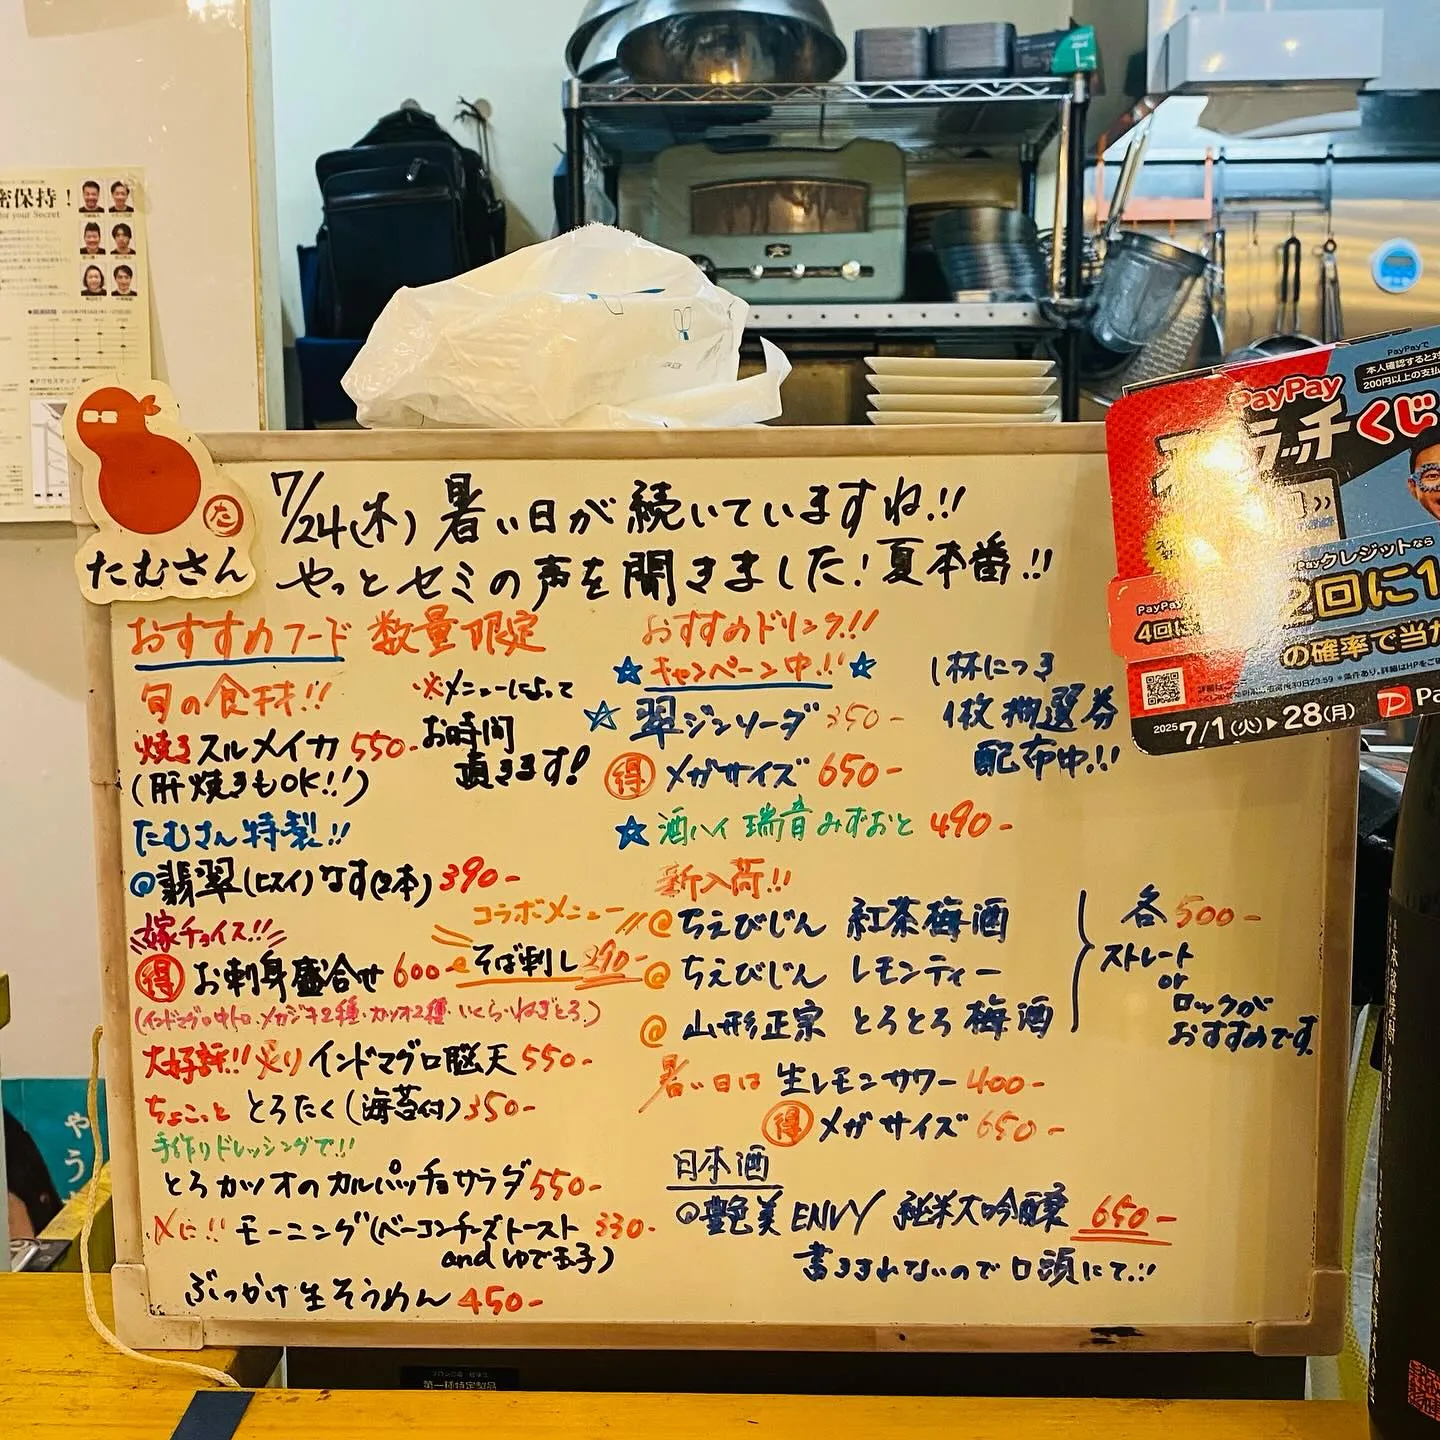 密保持！
for your Secret
た
たむさん
7/24(木) 暑い日が続いていますね!!
やっとセミの声を聞きました！夏本番!!
おすすめフード 数量限定
旬の食材!!
※メニューによって
お時間
頂きます!
焼きスルメイカ 550-
(肝焼きもOK!!)
たむさん特製!!
@翡翠(ヒスイ)なす(2本) 390-
嫁チョイス!!
得 お刺身盛合せ 600-
(インドマグロ中トロ・メカジキ2種・カツオ2種・いくら・ねぎとろ)
コラボメニュー
@そば刺し 290-
大好評!! 炙りインドマグロ脳天 550-
ちょこっと とろたく(海苔付) 350-
手作りドレッシングで!!
とろカツオのカルパッチョサラダ 550-
〆に!! モーニング(ベーコンチーズトースト 330-
and ゆで玉子)
ぶっかけ生そうめん 450-
おすすめドリンク!!
☆キャンペーン中!!☆
1杯につき
1枚抽選券
配布中!!
☆翠ジンソーダ 350-
得 メガサイズ 650-
☆酒ハイ 瑞音 みずおと 490-
新入荷!!
@ちえびじん 紅茶梅酒
@ちえびじん レモンティー
@山形正宗 とろとろ梅酒
各500-
ストレート
or
ロックが
おすすめです
暑い日は 生レモンサワー 400-
得 メガサイズ 650-
日本酒
@艶美 ENVY 純米大吟醸 650-
書ききれないので口頭にて!!
PayPayで
PayPay
スクラッチくじ
200円以上の支払
PayPayクレジットなら
2回に1
の確率で当
2025 7/1(火)▶28(月)
やう
第一種特定製品